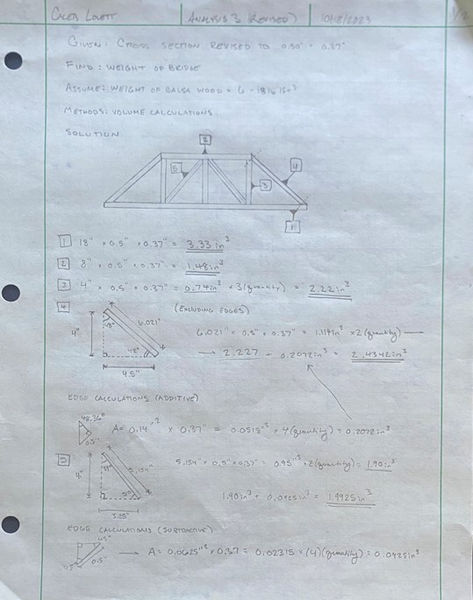 CALEB LOVETT ANALYSIS 3 (REVISED) 10/18/2023
GIVEN: CROSS SECTION REVISED TO 0.50" × 0.37"
FIND: WEIGHT OF BRIDGE
ASSUME: WEIGHT OF BALSA WOOD =
METHODS: VOLUME CALCULATIONS
SOLUTION
2
5
4
3
1
1 18" × 0.5" × 0.37" = 3.33 in³
2 8" × 0.5" × 0.37" = 1.48 in³
3 4" × 0.5" × 0.37" = 0.74 in³ × 3 (quantity) = 2.22 in³
4 (EXCLUDING EDGES)
4" 6.021" 6.021" × 0.5" × 0.37" = 1.114 in³ × 2 (quantity)
→ 2.227 0.2072 in³ = 2.4342 in³
4.5"
EDGE CALCULATIONS (ADDITIVE)
48.36°
0.5"
A = 0.14"² × 0.37" = 0.0518"³ × 4 (quantity) = 0.2072 in³
5
4" 5.154" 5.154" × 0.5" × 0.37" = 0.95"³ × 2 (quantity) = 1.90 in³
1.90 in³ + 0.0925 in³ = 1.9925 in³
3.25"
EDGE CALCULATIONS (SUBTRACTIVE)
45°
0.5" 0.5"
→ A = 0.0625"² × 0.37 = 0.02315 × (4)(quantity) = 0.0925 in³